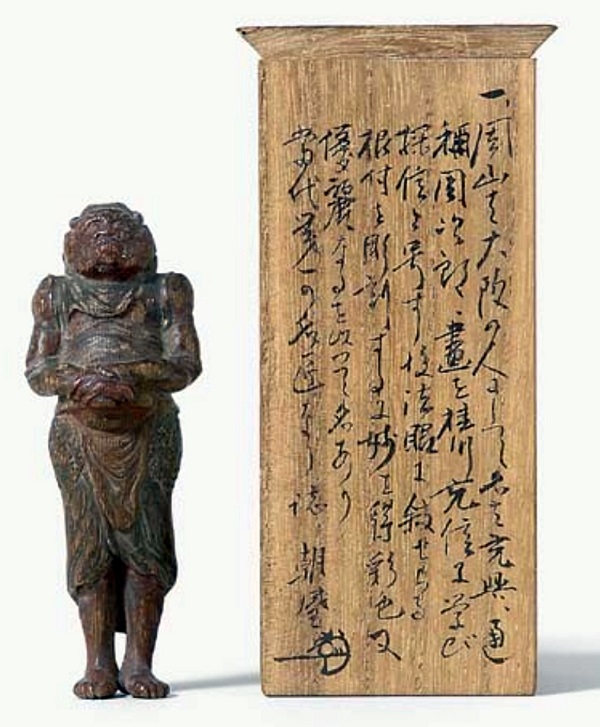 一、周山ハ大阪の人にして名ハ充興、通
稱周次郎、畫を桂川充信に学び
探信と号す後法眼に叙せらる
根付を彫刻するに妙を得彩色又
優麗なるを以て名あり
当代第一の名匠なり 誌 朝盛